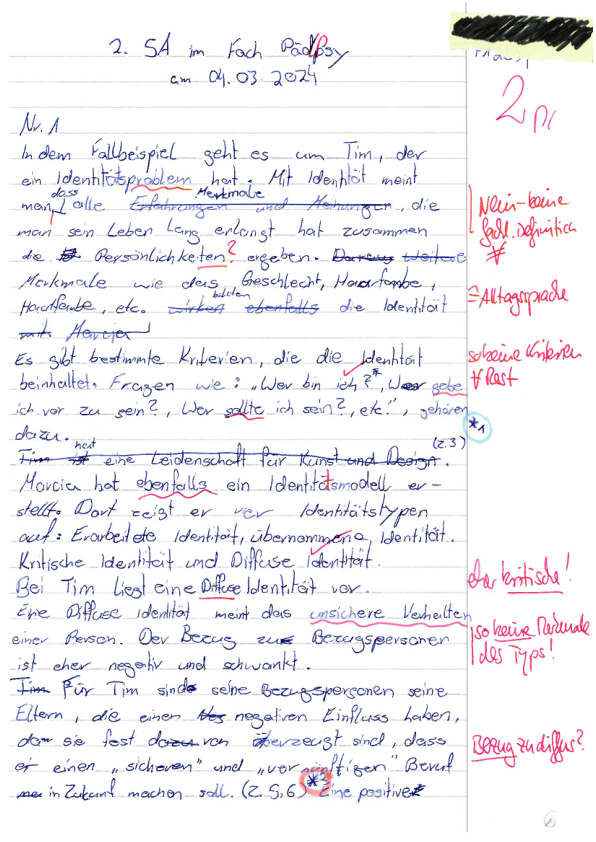 2. SA im Fach PädPsy
am 04.03.2024
2 Pl
Nr. 1
In dem Fallbeispiel geht es um Tim, der
ein Identitätsproblem hat. Mit Identität meint
man, dass alle Erfahrungen und Meinungen Merkmale, die
man sein Leben lang erlangt hat zusammen
die Persönlichkeiten? ergeben. weitere
Merkmale wie das Geschlecht, Haarfarbe,
Hautfarbe, etc. wirken ebenfalls bilden die Identität
mit. Marcia
Es gibt bestimmte Kriterien, die die Identität
beinhaltet. Fragen wie: „Wer bin ich?", Wer gebe
ich vor zu sein?, Wer sollte ich sein?, etc.", gehören
dazu. *1
Tim ist hat eine Leidenschaft für Kunst und Design. (Z.3)
Marcia hat ebenfalls ein Identitätsmodell er-
stellt. Dort zeigt er vier Identitätstypen
auf: Erarbeitete Identität, übernommene Identität.
Kritische Identität und Diffuse Identität.
Bei Tim liegt eine Diffuse Identität vor.
Eine Diffuse Identität meint das unsichere Verhalten
einer Person. Der Bezug zu Bezugspersonen
ist eher negativ und schwankt.
Tim Für Tim sind seine Bezugspersonen seine
Eltern, die einen negativen Einfluss haben,
da sie fest dazu von überzeugt sind, dass
er einen „sicheren" und „vernünftigen" Beruf
in Zukunft machen soll. (Z. 5,6) Eine positive
Nein - keine
Definition
= Alltagssprache
so keine Kriterien
eher kritische!
so keine Merkmale
des Typs!
Bezug zu diffus?